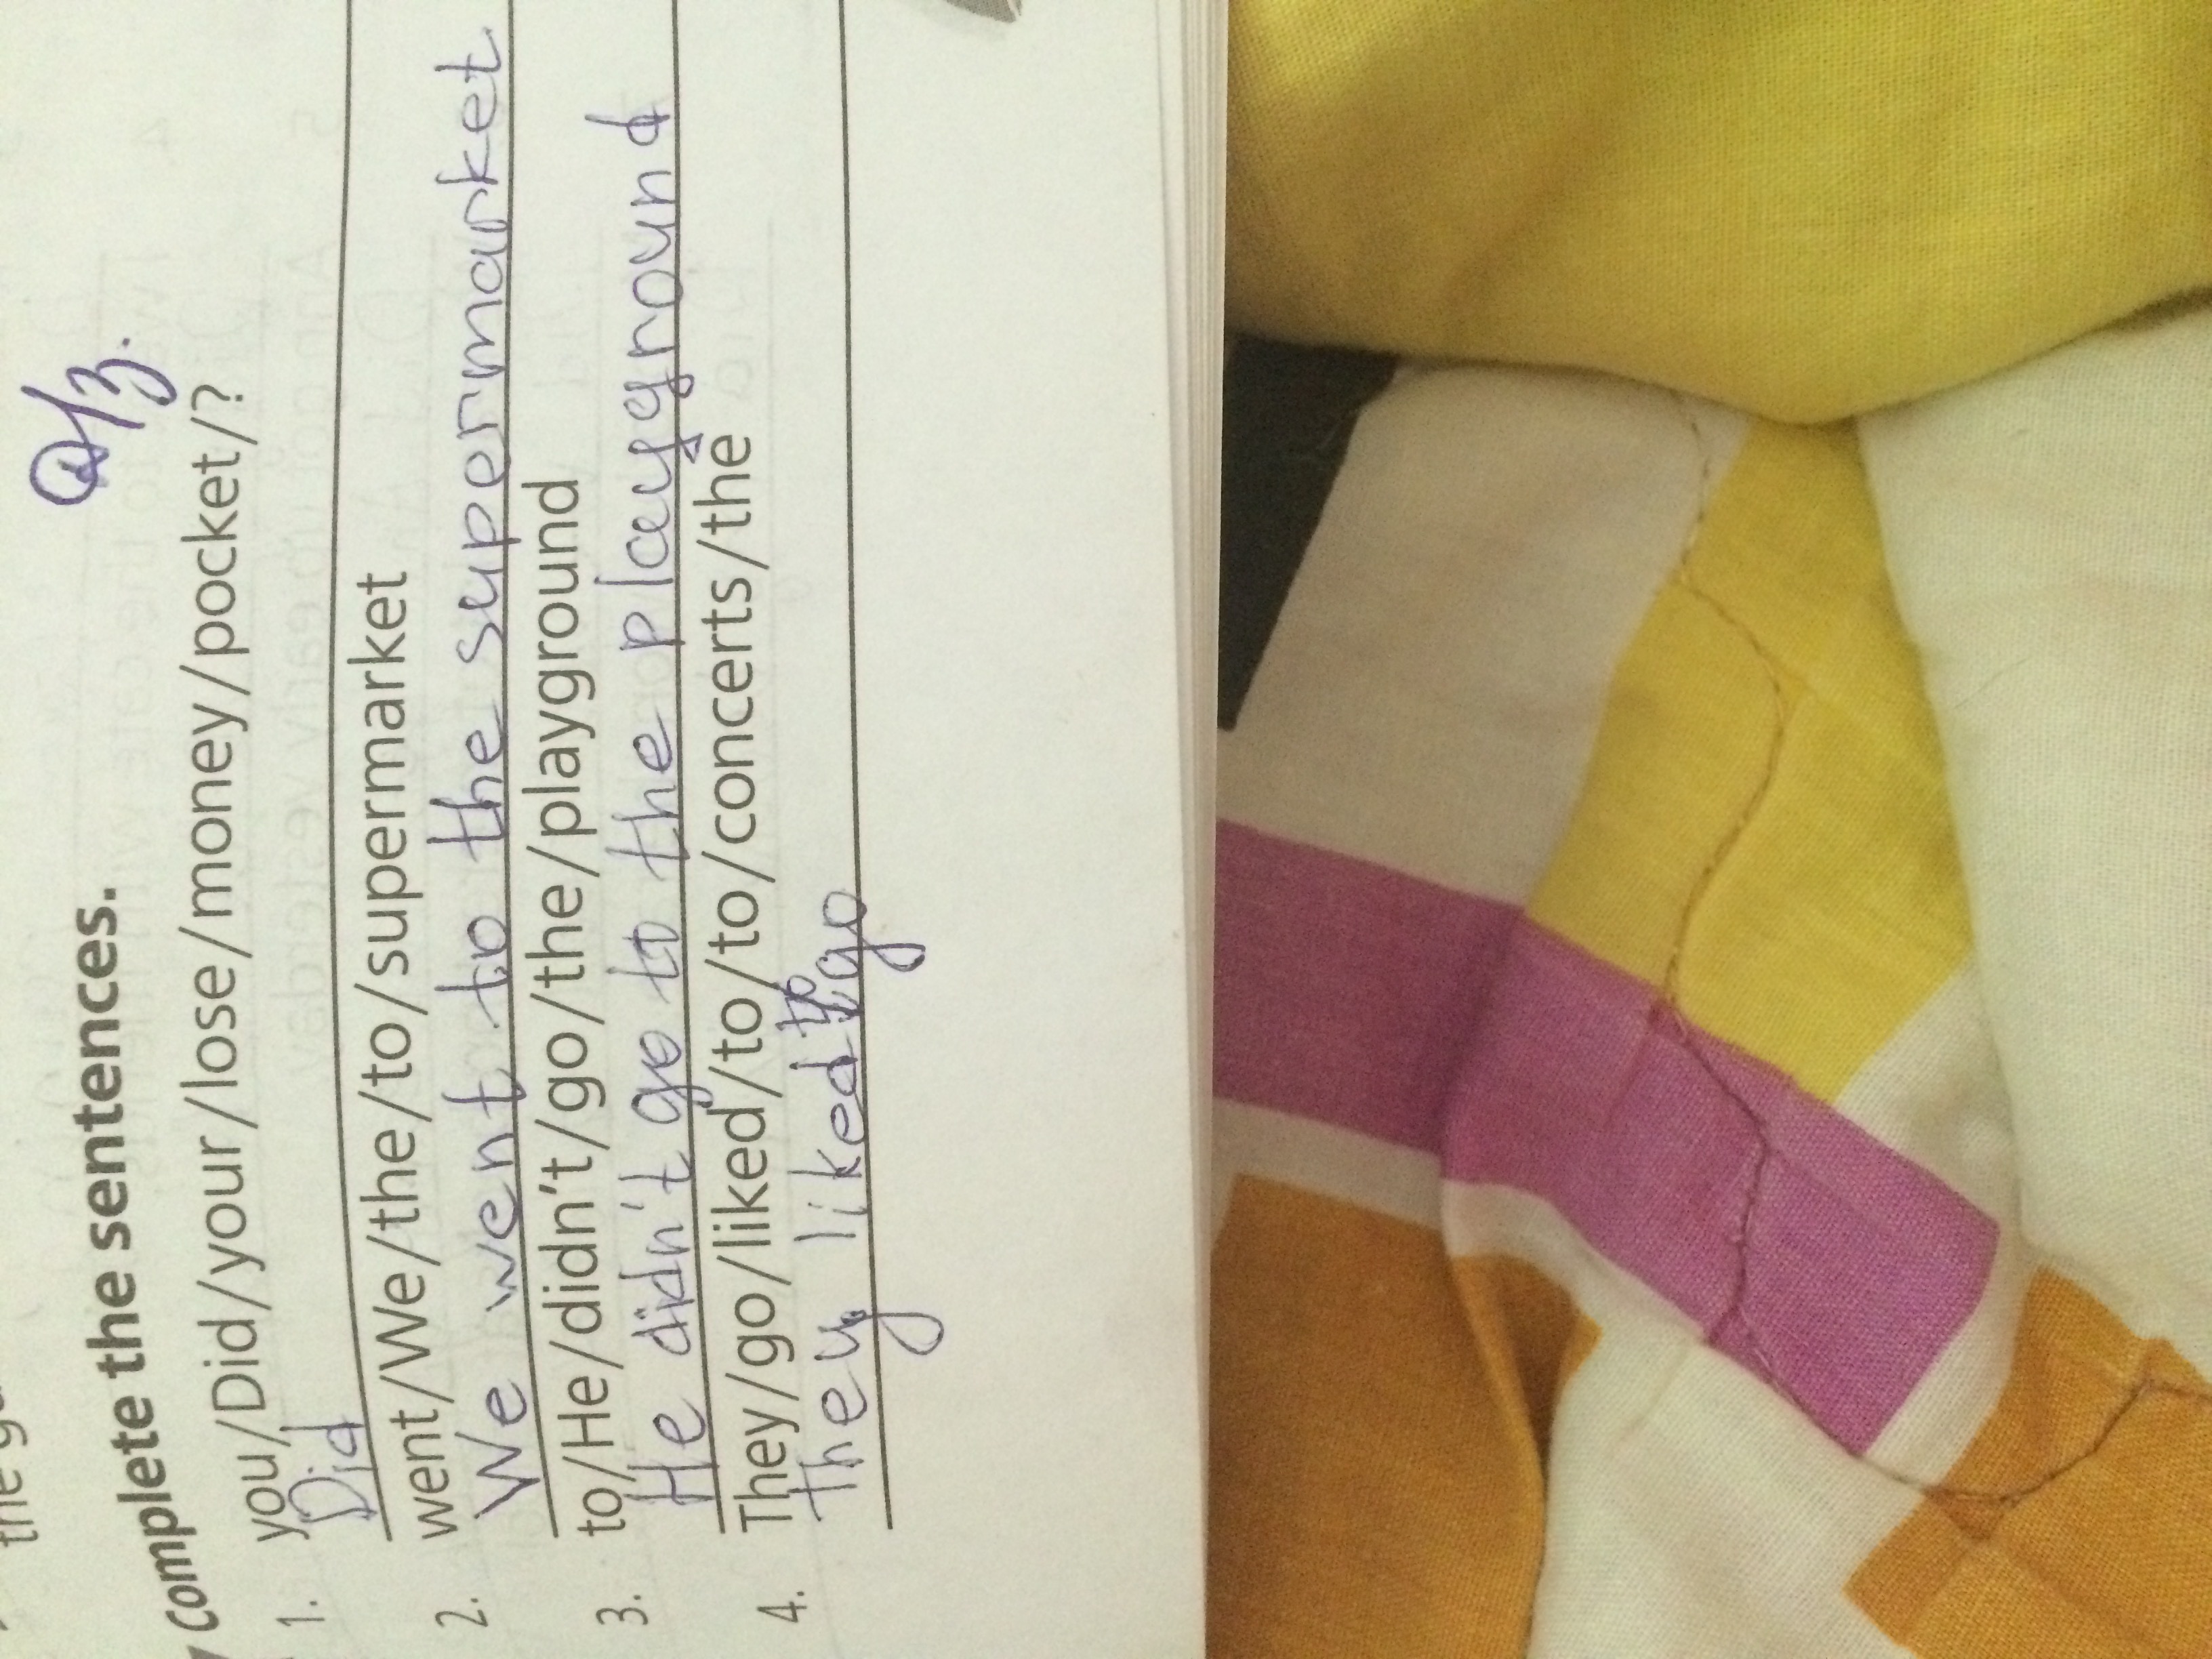 Complete the sentences.
1. you/Did/your/lose/money/pocket/?
Did
2. went/We/the/to/supermarket
We went to the supermarket
3. to/He/didn't/go/the/playground
He didn't go to the playground
4. They/go/liked/to/to/concerts/the
they liked to go